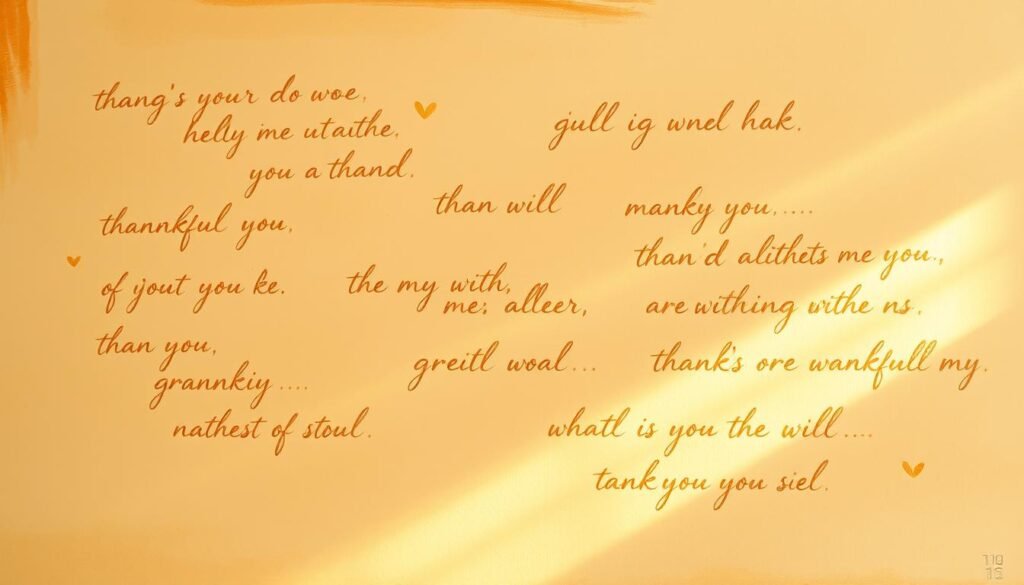 thang's your do woe,
helly ine utaithe,
you a thand.
thannkful you,
of ijout you ke.
than you,
grannkiy....
nathest of stoul.
than will
the my with,
me; alleer,
greitl woal...
gull ig wnel hak.
manky you,....
than'd alithets me you.,
are withing withe ns.
thank's ore wankfull my.
whatl is you the will....
tank you you siel.